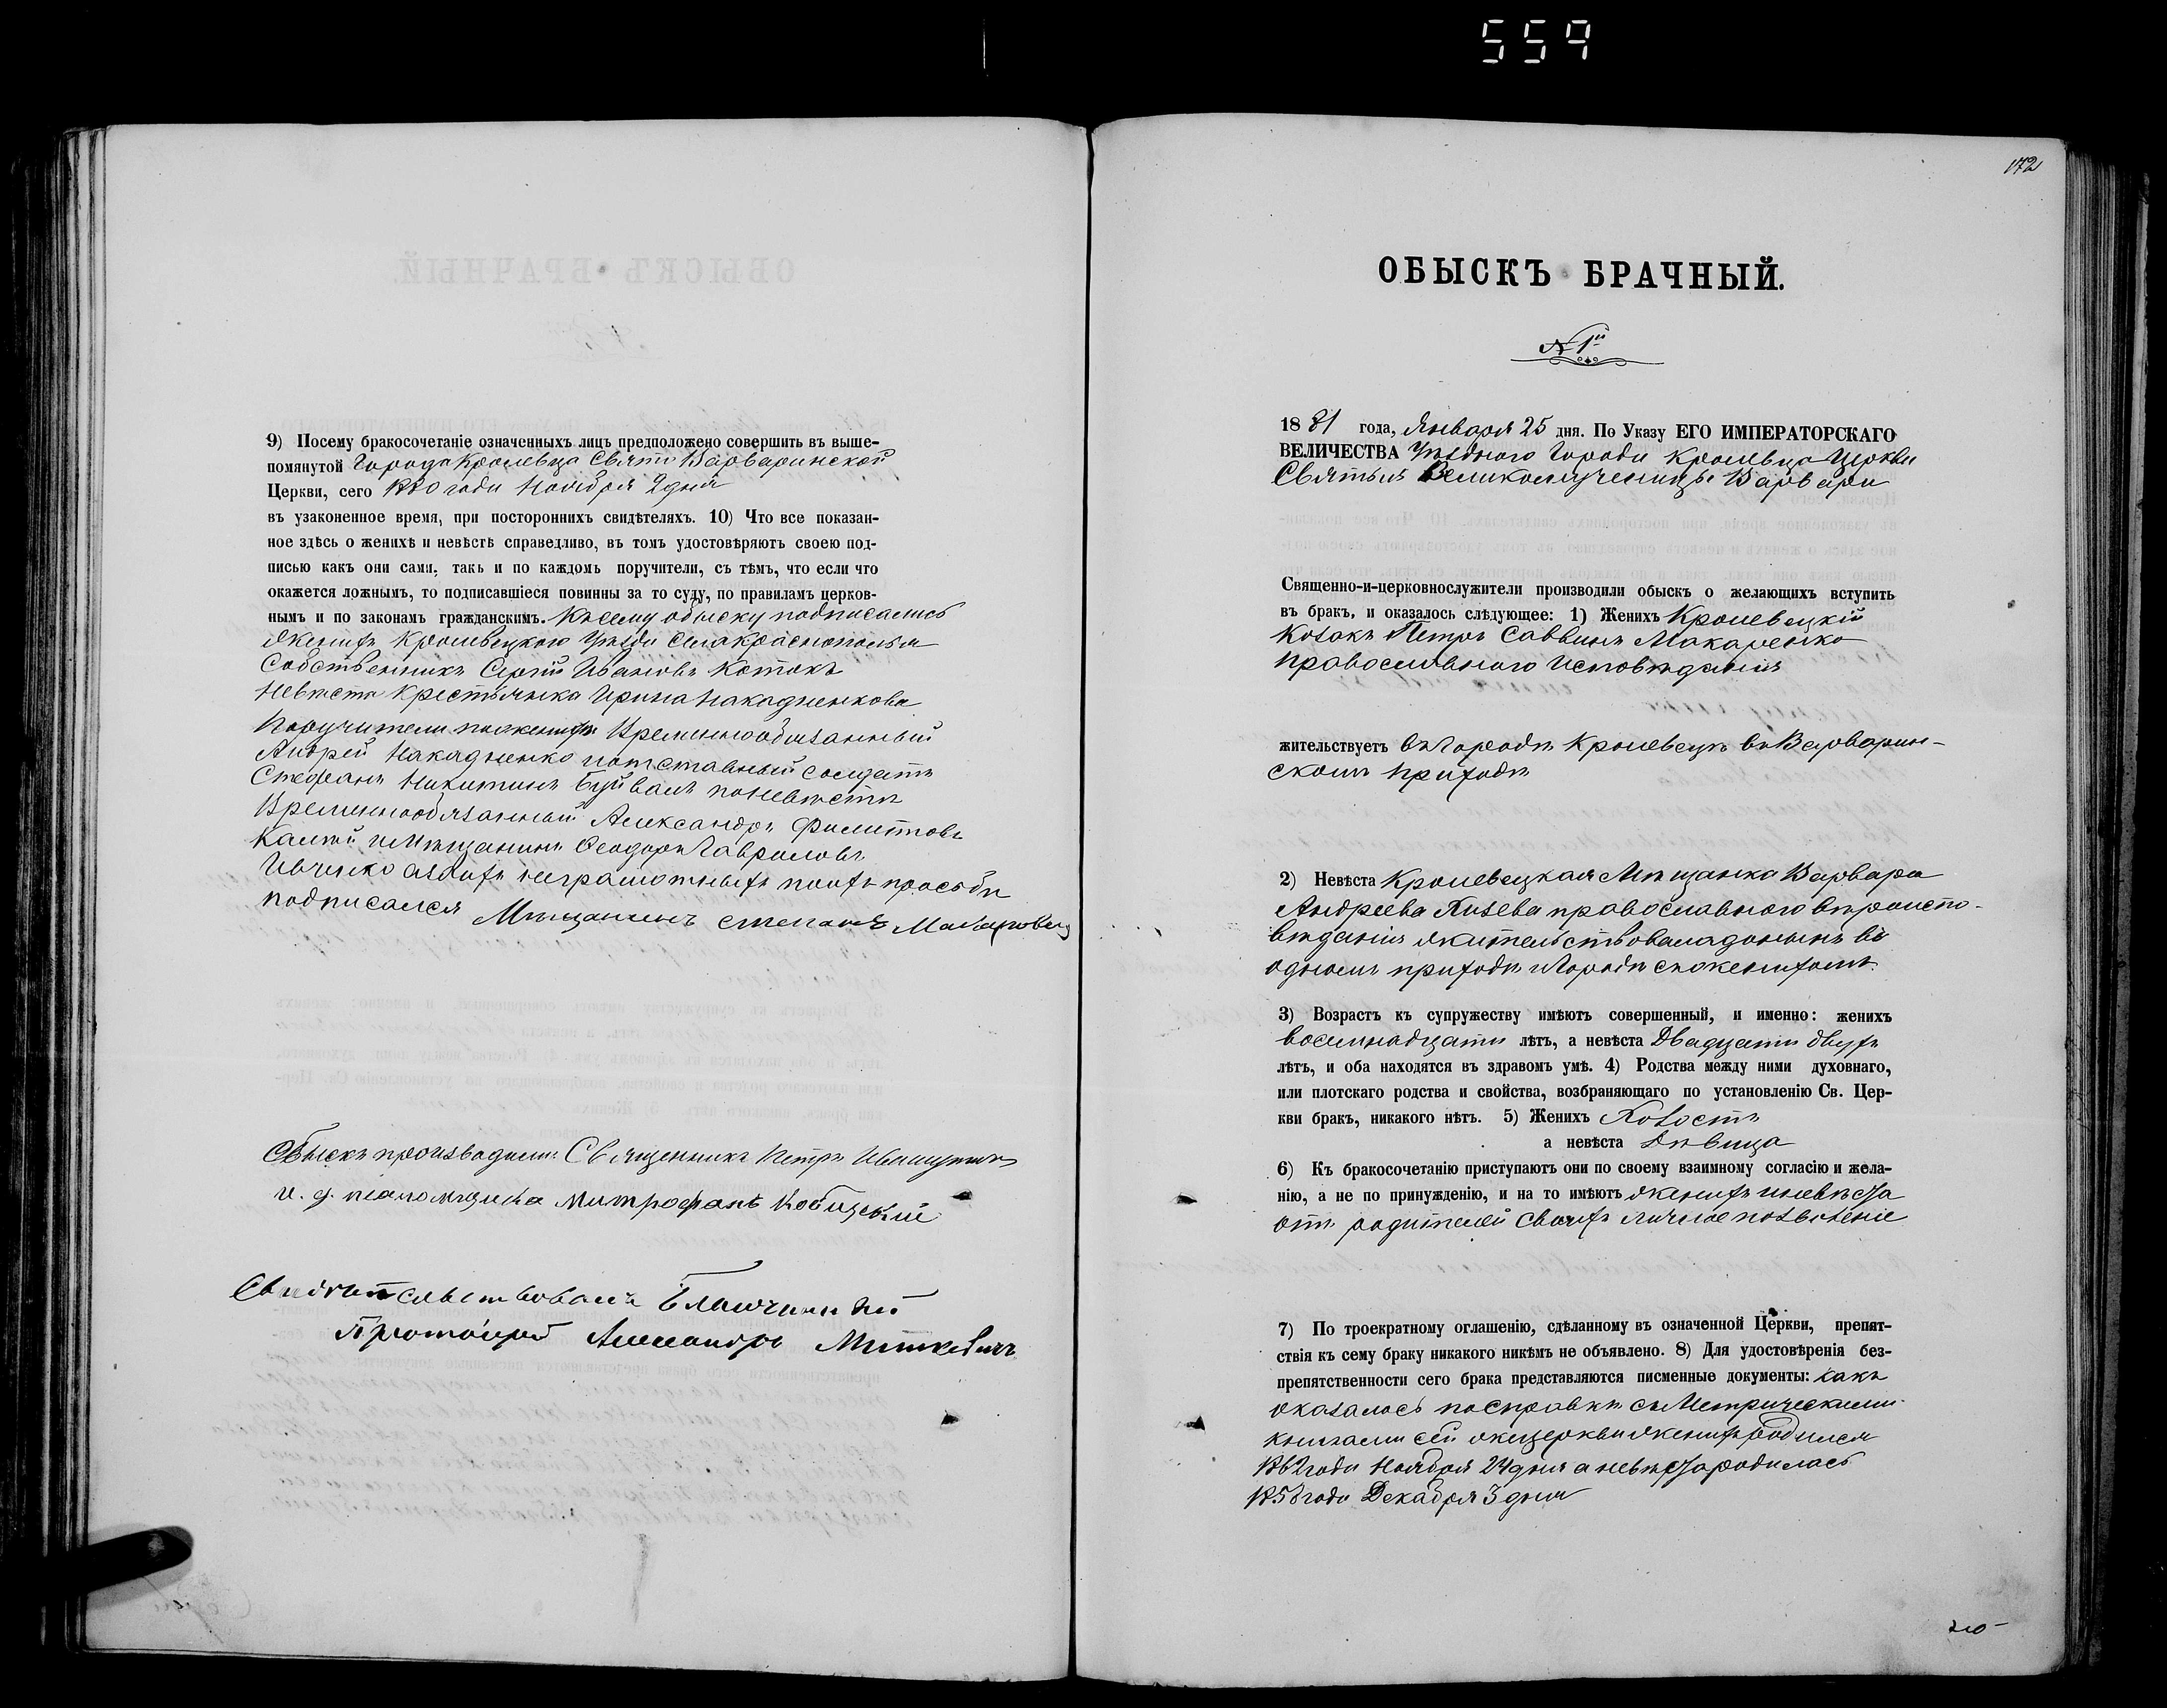 559
9) Посему бракосочетаніе означенныхъ лицъ предположено совершить въ выше-
помянутой Города Кролевца Свято Варваринской
Церкви, сего 1880 года Ноября 2 дня
въ узаконенное время, при постороннихъ свидѣтеляхъ. 10) Что все показан-
ное здѣсь о женихѣ и невѣстѣ справедливо, въ томъ удостовѣряютъ своею под-
писью какъ они сами, такъ и по каждомъ поручители, съ тѣмъ, что если что
окажется ложнымъ, то подписавшіеся повинны за то суду, по правиламъ церков-
нымъ и по законамъ гражданскимъ. Къ сему обыску подписались
женихъ Кролевецкого Уѣзда Села Краснополья
Собственникъ Сергій Ивановъ Котокъ
Невѣста Крестьянка Ирина Накадненкова
Поручители по женихѣ Временнообязанный
Андрей Накадненко и отставный солдатъ
Стефанъ Никитинъ Буйвалъ по невѣстѣ
Временнообязанный Александръ Филиповъ
и Мѣщанинъ Феодоръ Гавриловъ
Ивченко а за ихъ неграмотныхъ по ихъ просьбѣ
подписался Мѣщанинъ степанъ
Обыскъ производили: Священникъ Петръ
и. д. псаломщика Митрофанъ
Свидѣтельствовалъ Благочинный
Протоіерей Александръ Миткевичъ
172
ОБЫСКЪ БРАЧНЫЙ.
№ 1й
1881 года, Января 25 дня. По Указу ЕГО ИМПЕРАТОРСКАГО
ВЕЛИЧЕСТВА Уѣздного Города Кролевца Церкви
Святыя Великомученицы Варвары
Священно-и-церковнослужители производили обыскъ о желающихъ вступить
въ бракъ, и оказалось слѣдующее: 1) Женихъ Кролевецкій
Козакъ Петръ Саввинъ Макаренко
православного исповѣданія
жительствуетъ въ Городѣ Кролевецъ въ Варварин-
скомъ приходѣ
2) Невѣста Кролевецкая Мѣщанка Варвара
Андреева Лизева православного вѣроиспо-
вѣданія жительствовала донынѣ въ
одномъ приходѣ и Городѣ съ женихомъ.
3) Возрастъ къ супружеству имѣютъ совершенный, и именно: женихъ
восемнадцати лѣтъ, а невѣста Двадцати двухъ
лѣтъ, и оба находятся въ здравомъ умѣ. 4) Родства между ними духовнаго,
или плотскаго родства и свойства, возбраняющаго по установленію Св. Цер-
кви бракъ, никакого нѣтъ. 5) Женихъ Холостъ
а невѣста Дѣвица
6) Къ бракосочетанію приступаютъ они по своему взаимному согласію и жела-
нію, а не по принужденію, и на то имѣютъ женихъ и невѣста
отъ родителей своихъ личное позволеніе
7) По троекратному оглашенію, сдѣланному въ означенной Церкви, препят-
ствія къ сему браку никакого никѣмъ не объявлено. 8) Для удостовѣренія без-
препятственности сего брака представляются писменные документы: какъ
оказалось по справкѣ съ Метрическими
книгами сей же церкви женихъ родился
1862 года Ноября 24 дня а невѣста родилась
1858 года Декабря 3 дня